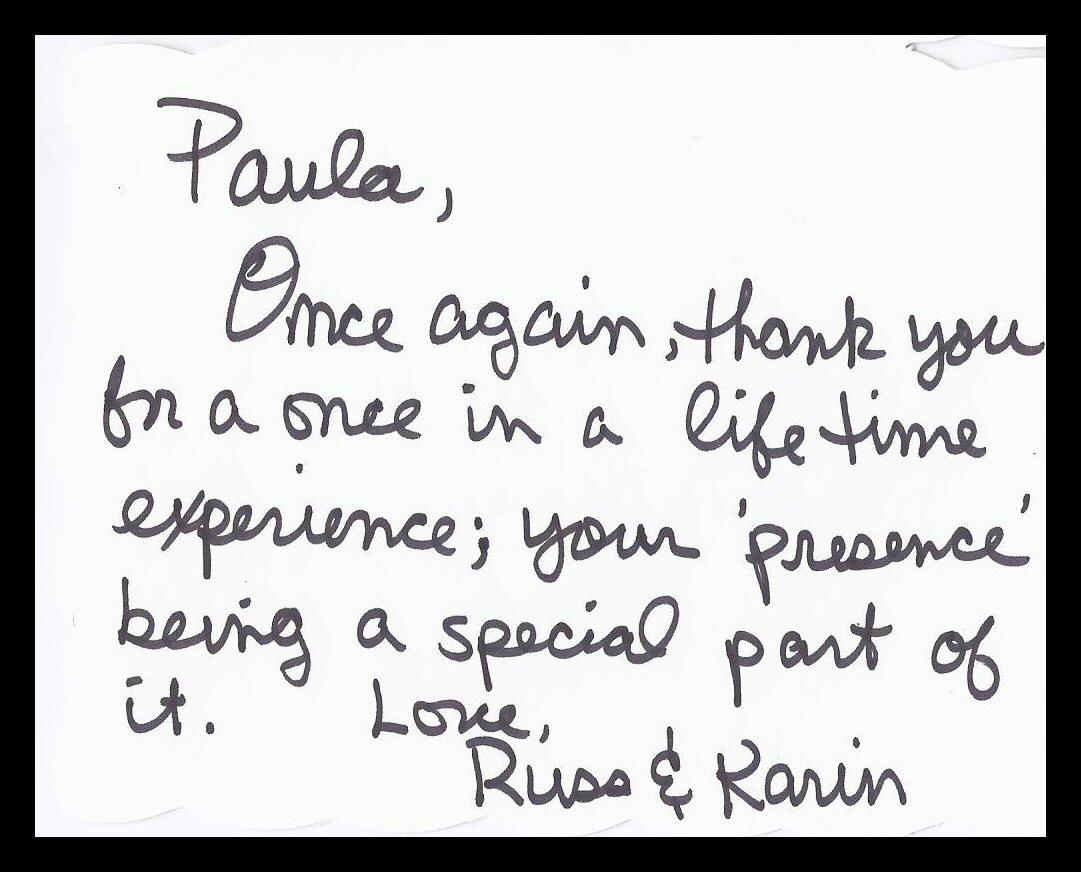 Paula,
Once again, thank you
for a once in a life time
experience; your 'presence'
being a special part of
it. Love,
Russ & Karin